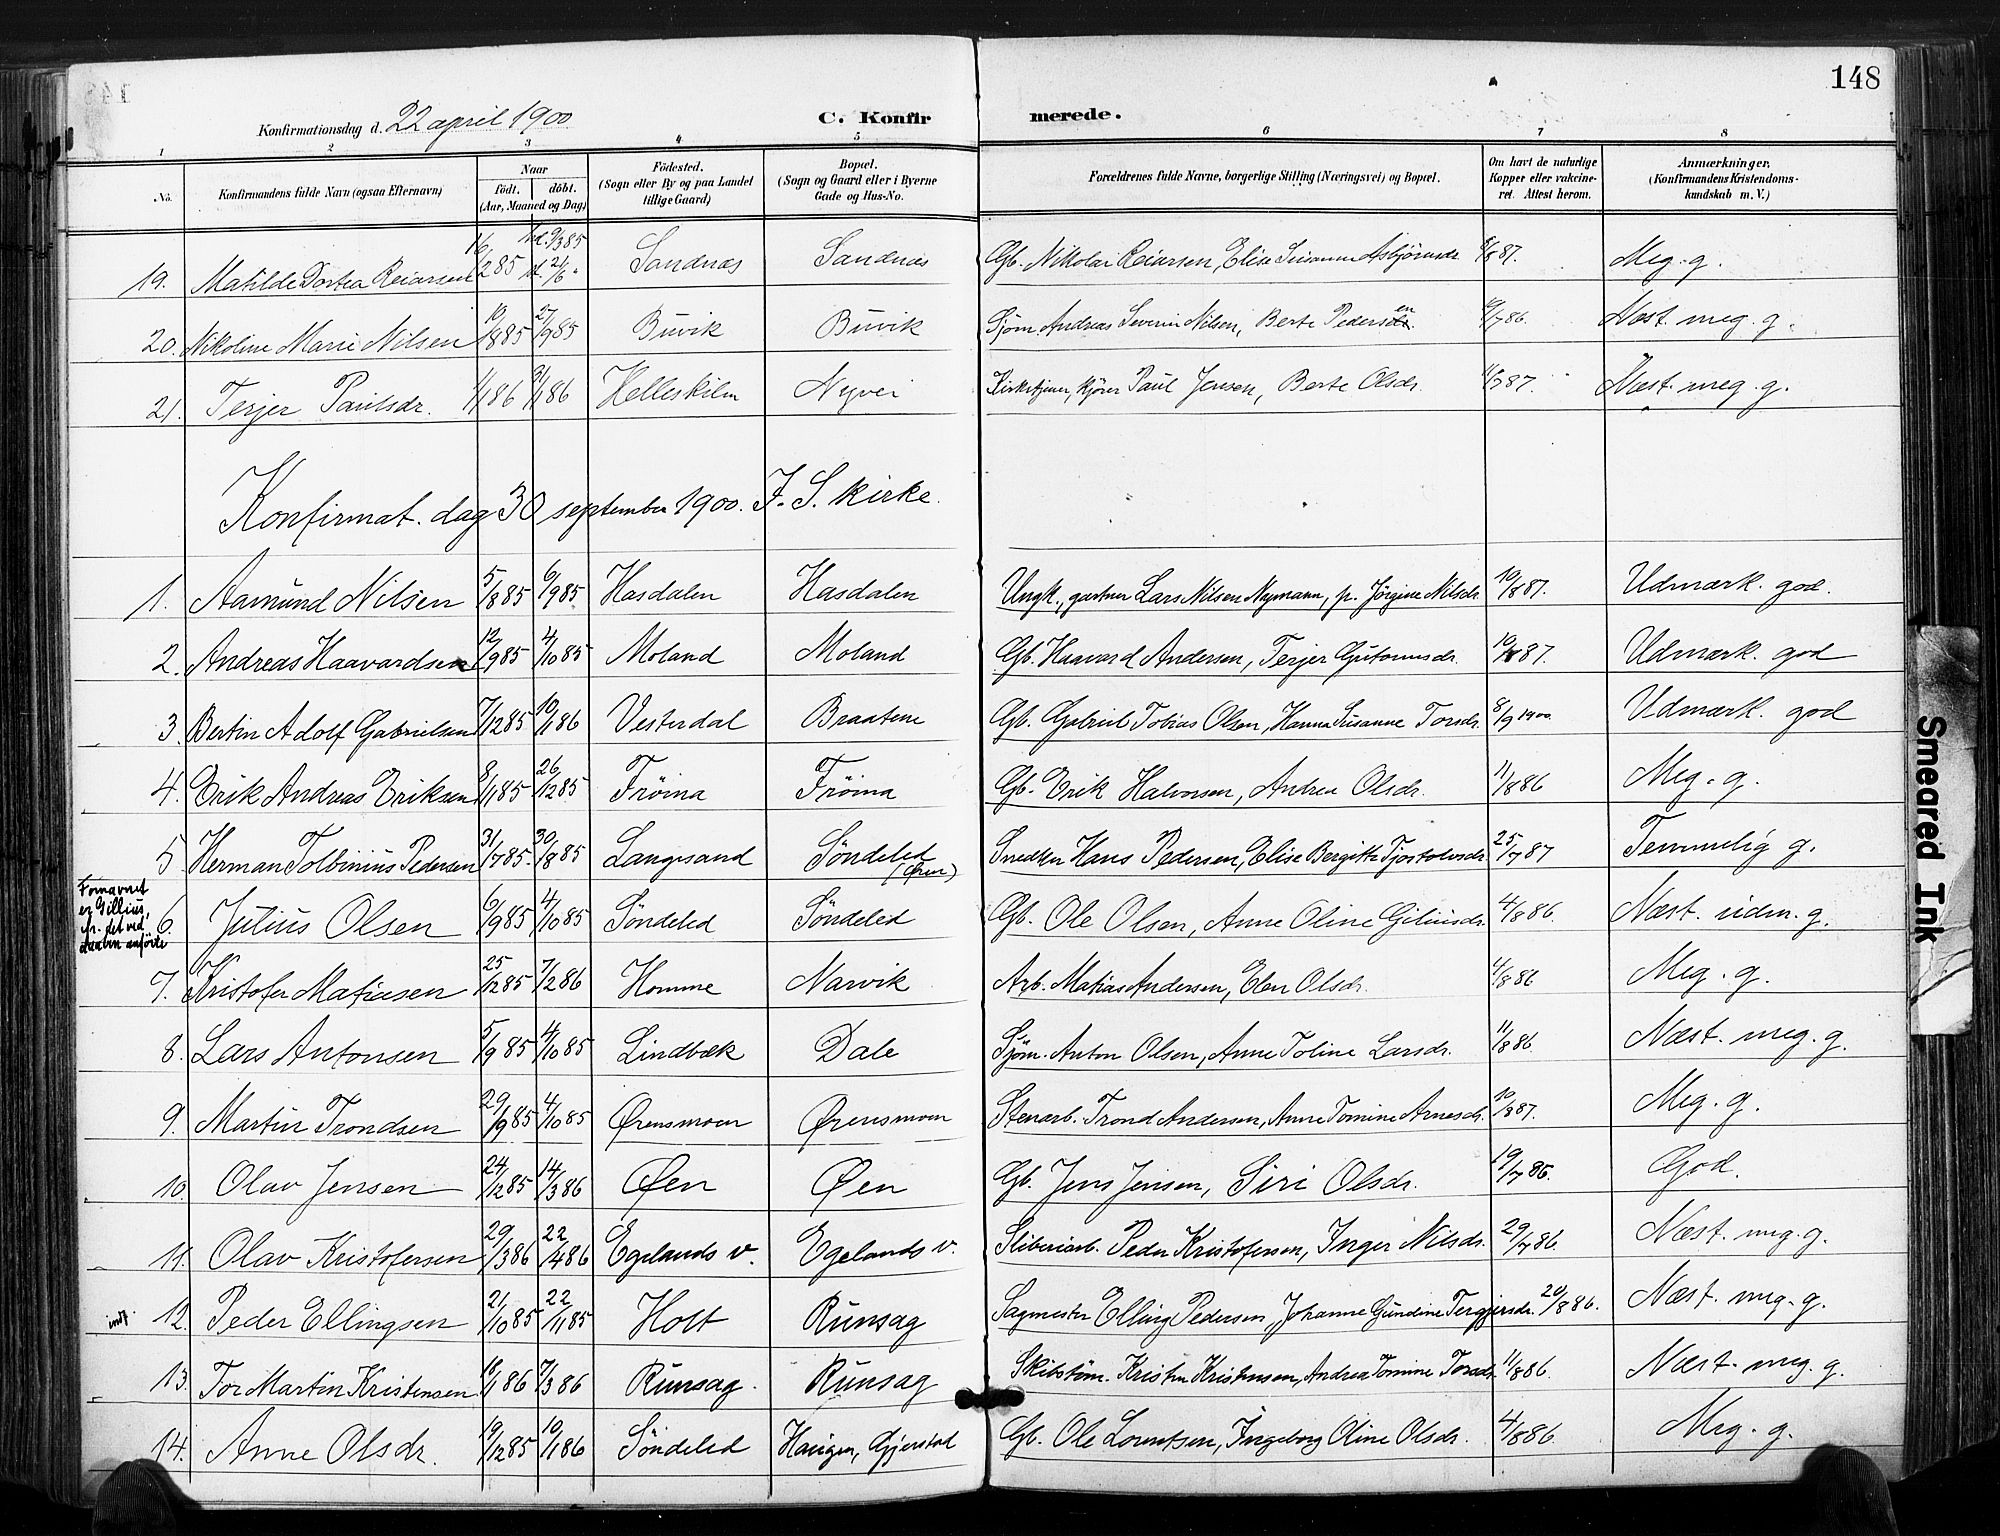 148
Konfirmationsdag d. 22 april 1900. C. Konfirmerede.
1 2 3 4 5 6 7 8
No. Konfirmandens fulde Navn (ogsaa Efternavn) Naar født. døbt. (Aar, Maaned og Dag) Fødested. (Sogn eller By og paa Landet tillige Gaard) Bopæl. (Sogn og Gaard eller i Byerne Gade og Hus-No. Forældrenes fulde Navne, borgerlige Stilling (Næringsvei) og Bopæl. Om havt de naturlige Kopper eller vakcineret. Attest herom. Anmærkninger. (Konfirmandens Kristendomskundskab m. V.)
19. Matilde Dortea Reiarsen 16/2 85 hd. 9/3 85 Sandnæs Sandnæs Gb. Nikolai Reiarsen, Elise Susanne Asbjörnsdr. Meg. g.
20. Nikoline Marie Nilsen 19/8 85 27/9 85 Buvik Buvik Sjøm. Andreas Severin Nilsen, Berte Pedersen Næst. meg. g.
21. Terjer Paulsdr. 1/1 86 31/1 86 Helleskilen Nyvei Kirketjener, kjører Paul Jensen, Berte Olsdr. Næst. meg. g.
Konfirmat. dag 30 september 1900. I. S. kirke.
1. Aamund Nilsen 5/8 85 6/9 85. Hasdalen Hasdalen Ungk., gartner Lars Nilsen Nymann, p. Jørgine Nilsdr. 19/8 87. Udmærk. god.
2. Andreas Haavardsen 12/9 85 4/10 85 Moland Moland Gb. Haavard Andersen, Terjer Gutormsdr. Udmærk. god
3. Bertin Adolf Gabrielsen 7/12 85 10/1 86 Vesterdal Braatene Gb. Gabriel Tobias Olsen, Hanna Susanne Torsdr. 8/9 1900. Udmærk. god
4. Erik Andreas Eriksen 8/11 85 26/12 85 Frøina Frøina Gb. Erik Halvorsen, Andrea Olsdr. 11/8 86 Meg. g.
5 Herman Tolbinius Pedersen 31/7 85. 30/8 85 Langsand Söndeled (Øren) Snedker Hans Pedersen, Elise Bergitte Tjostolvsdr. 25/7 87 Temmelig g.
Fornavnet er Gillius, ifr. det ved daaben anførte
6. Julius Olsen 6/9 85 4/10 85 Söndeled Söndeled Gb. Ole Olsen, Anne Oline Giliusdr. 4/8 86. Næst. udm. g.
7. Kristofer Matiasen 25/12 85 7/2 86 Homme Narvik Arb. Matias Andersen, Elen Olsdr. 4/8 86 Meg. g.
8. Lars Antonsen 5/9 85 4/10 85 Lindbæk Dale Sjøm. Anton Olsen, Anne Toline Larsdr. 11/8 86 Næst. meg. g.
9. Martin Trondsen 29/9 85 4/10 85 Ørensmoen Ørensmoen Stenarb. Trond Andersen, Anne Tomine Arnesdr. Meg. g.
10. Olav Jensen 24/12 85 14/3 86 Øen Øen Gb. Jens Jensen, Siri Olsdr. God.
11. Olav Kristofersen 29/3 86 22/4 86 Egelands v. Egelands v. Sliberiarb. Peder Kristofersen, Inger Nilsdr. 29/7 86. Næst. meg. g.
indf 12. Peder Ellingsen 21/10 85 22/11 85 Holt Runsag Sagmester Elling Pedersen, Johanne Gundine Tergjersdr. 20/8 86. Næst. meg. g.
13. Tor Martin Kristensen 18/1 86 7/3 86 Runsag. Runsag Skibstøm. Kristen Kristensen, Andrea Tomine Torsdr. 11/8 86. Næst. meg. g.
14. Anne Olsdr. 19/12 85 10/1 86 Söndeled Haugen, Gjerstad Gb. Ole Lorentsen, Ingeborg Oline Olsdr. 4/8 86. Meg. g.
Smeared Ink